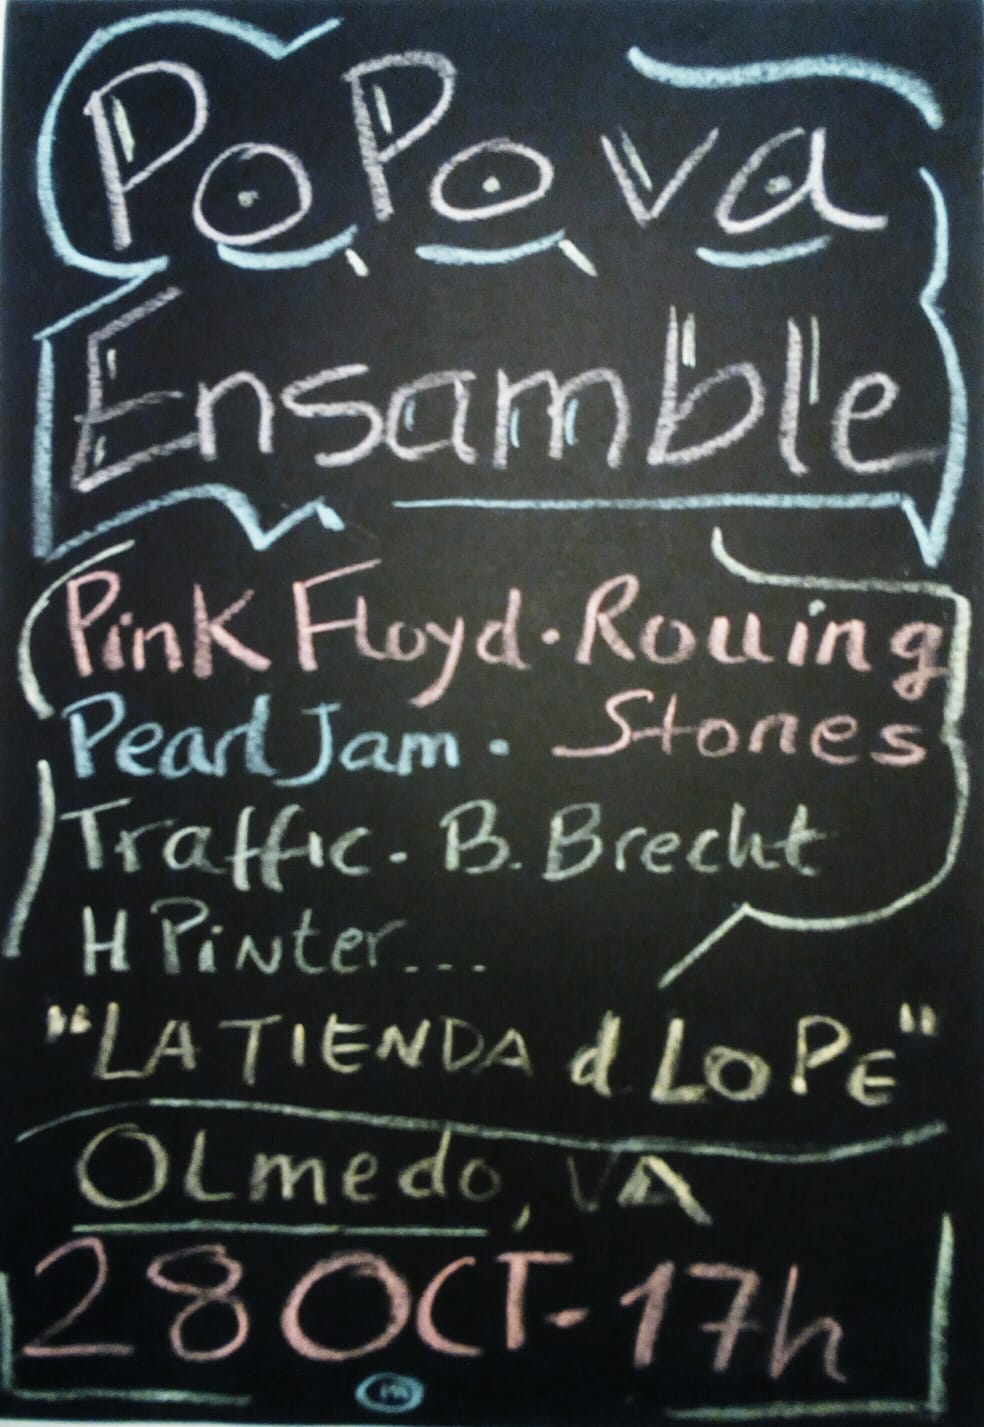 PoPova
Ensamble
Pink Floyd · Rolling
Pearl Jam · Stones
Traffic. B. Brecht
H Pinter...
"LA TIENDA d LOPE"
OLmedo, VA
28 OCT - 17h